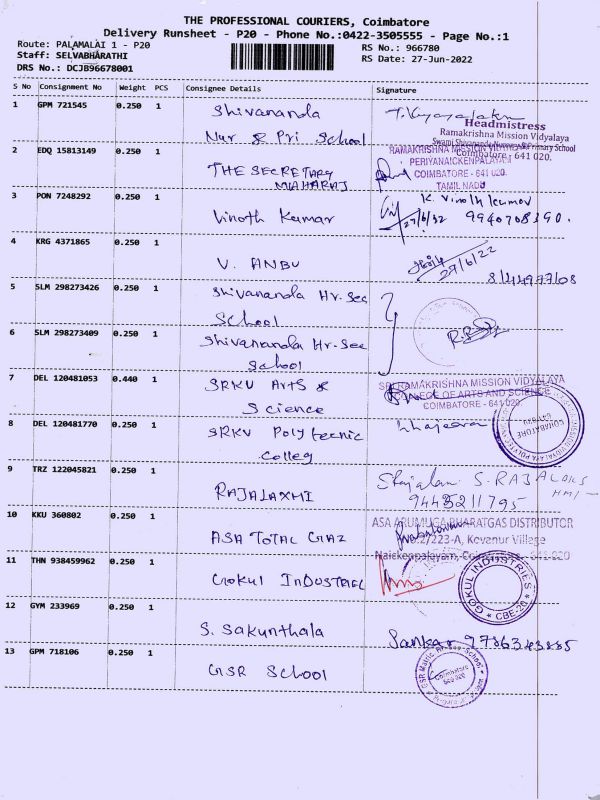 THE PROFESSIONAL COURIERS, Coimbatore
Delivery Runsheet - P20 - Phone No.:0422-3505555 - Page No.:1
Route: PALAMALAI 1 - P20
Staff: SELVABHARATHI
DRS No.: DCJB96678001
RS No.: 966780
RS Date: 27-Jun-2022
S No Consignment No Weight PCS Consignee Details Signature
1 GPM 721545 0.250 1 Shivananda
Nur & Pri School
Headmistress
Ramakrishna Mission Vidyalaya
Swami Shivananda Nursery & Primary School
Coimbatore - 641 020.
2 EDQ 15813149 0.250 1 THE SECRETARY
MAHARAJ
RAMAKRISHNA MISSION VIDYALAYA
PERIYANAICKENPALAYAM
COIMBATORE - 641 020.
TAMIL NADU
3 PON 7248292 0.250 1 Vinoth Kumar K. Vinoth kumar
27/6/22 9940708390.
4 KRG 4371865 0.250 1 V. ANBU
27/6/22
5 SLM 298273426 0.250 1 Shivananda Hr. Sec
School
6 SLM 298273409 0.250 1 Shivananda Hr-Sec
School
7 DEL 120481053 0.440 1 SRKV Arts &
Science
SRI RAMAKRISHNA MISSION VIDYALAYA
COLLEGE OF ARTS AND SCIENCE
COIMBATORE - 641 020.
8 DEL 120481770 0.250 1 SRKV Polytecnic
Colleg
COIMBATORE
9 TRZ 122045821 0.250 1 RAJALAXMI
9443211795
10 KKU 360802 0.250 1 ASA TOTAL GAZ
ASA ARUMUGA BHARATGAS DISTRIBUTOR
2/223-A, Kovanur Village
Naickenpalayam, Coimbatore - 641 020
11 THN 938459962 0.250 1 Gokul INDUSTRIEL
GOKUL INDUSTRIES
CBE-20
12 GYM 233969 0.250 1 S. Sakunthala Sankar
13 GPM 718106 0.250 1 GSR School
GSR Matric Hr Sec School
Coimbatore